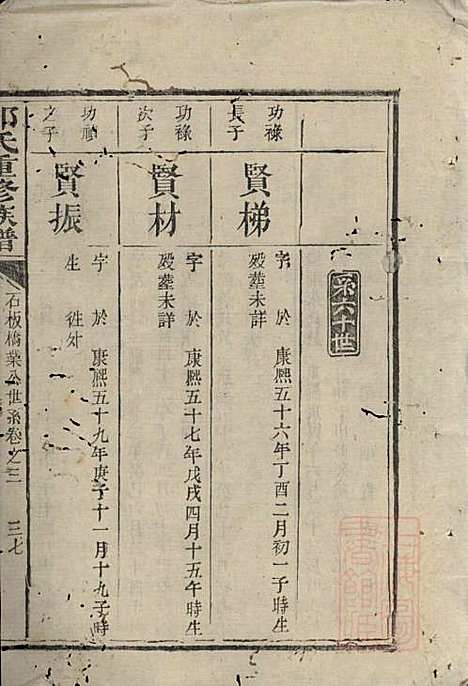 第六十世
功祿長子
賢梯
字 於 康熙五十六年丁酉二月初一子時生
歿塟未詳
功祿次子
賢材
字 於 康熙五十七年戊戌四月十五午時生
歿塟未詳
功禎之子
賢振
字 於 康熙五十九年庚子十一月十九子時
生 徃外
氏重修族譜
石板橋業公世系卷之三 三七